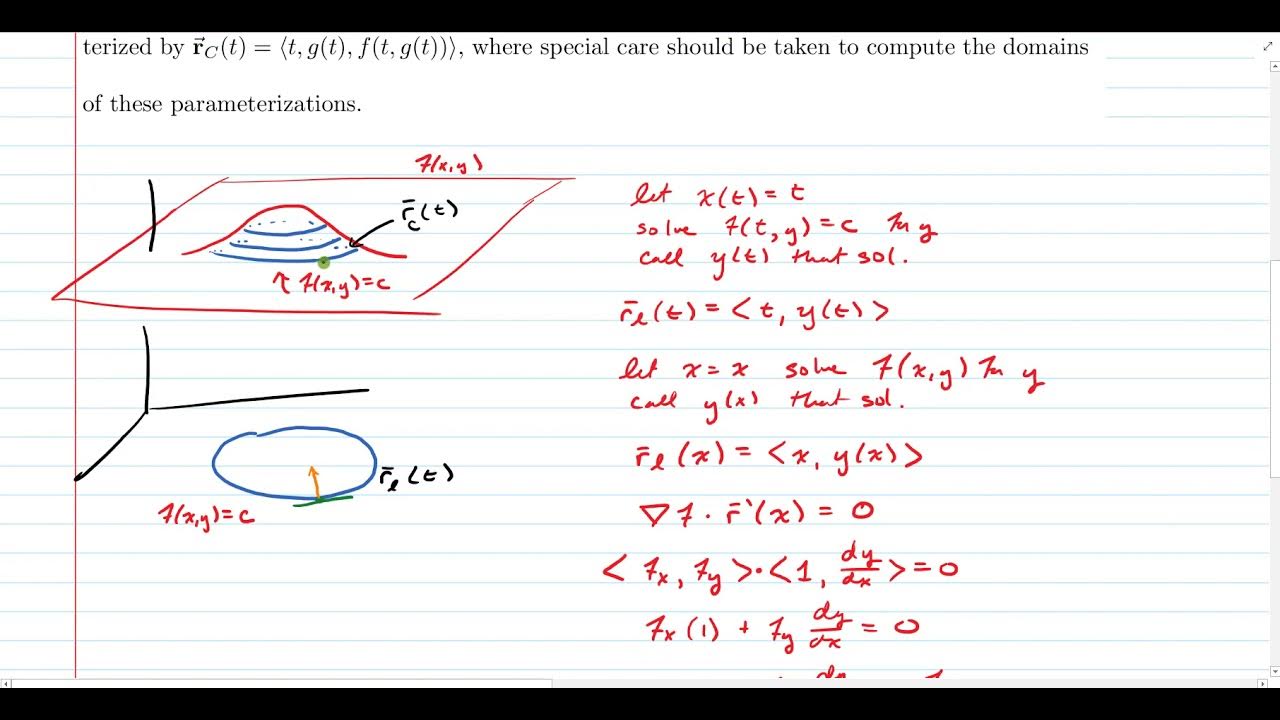 terized by r⃗_C(t) = ⟨t, g(t), f(t, g(t))⟩, where special care should be taken to compute the domains
of these parameterizations.
f(x,y)
r̄_c(t)
↑ f(x,y)=c
r̄_ℓ(t)
f(x,y)=c
let x(t)=t
solve f(t,y)=c for y
call y(t) that sol.
r̄_ℓ(t) = <t, y(t)>
let x=x solve f(x,y) for y
call y(x) that sol.
r̄_ℓ(x) = <x, y(x)>
∇f · r̄'(x) = 0
<f_x, f_y>·<1, dy/dx> = 0
f_x(1) + f_y dy/dx = 0